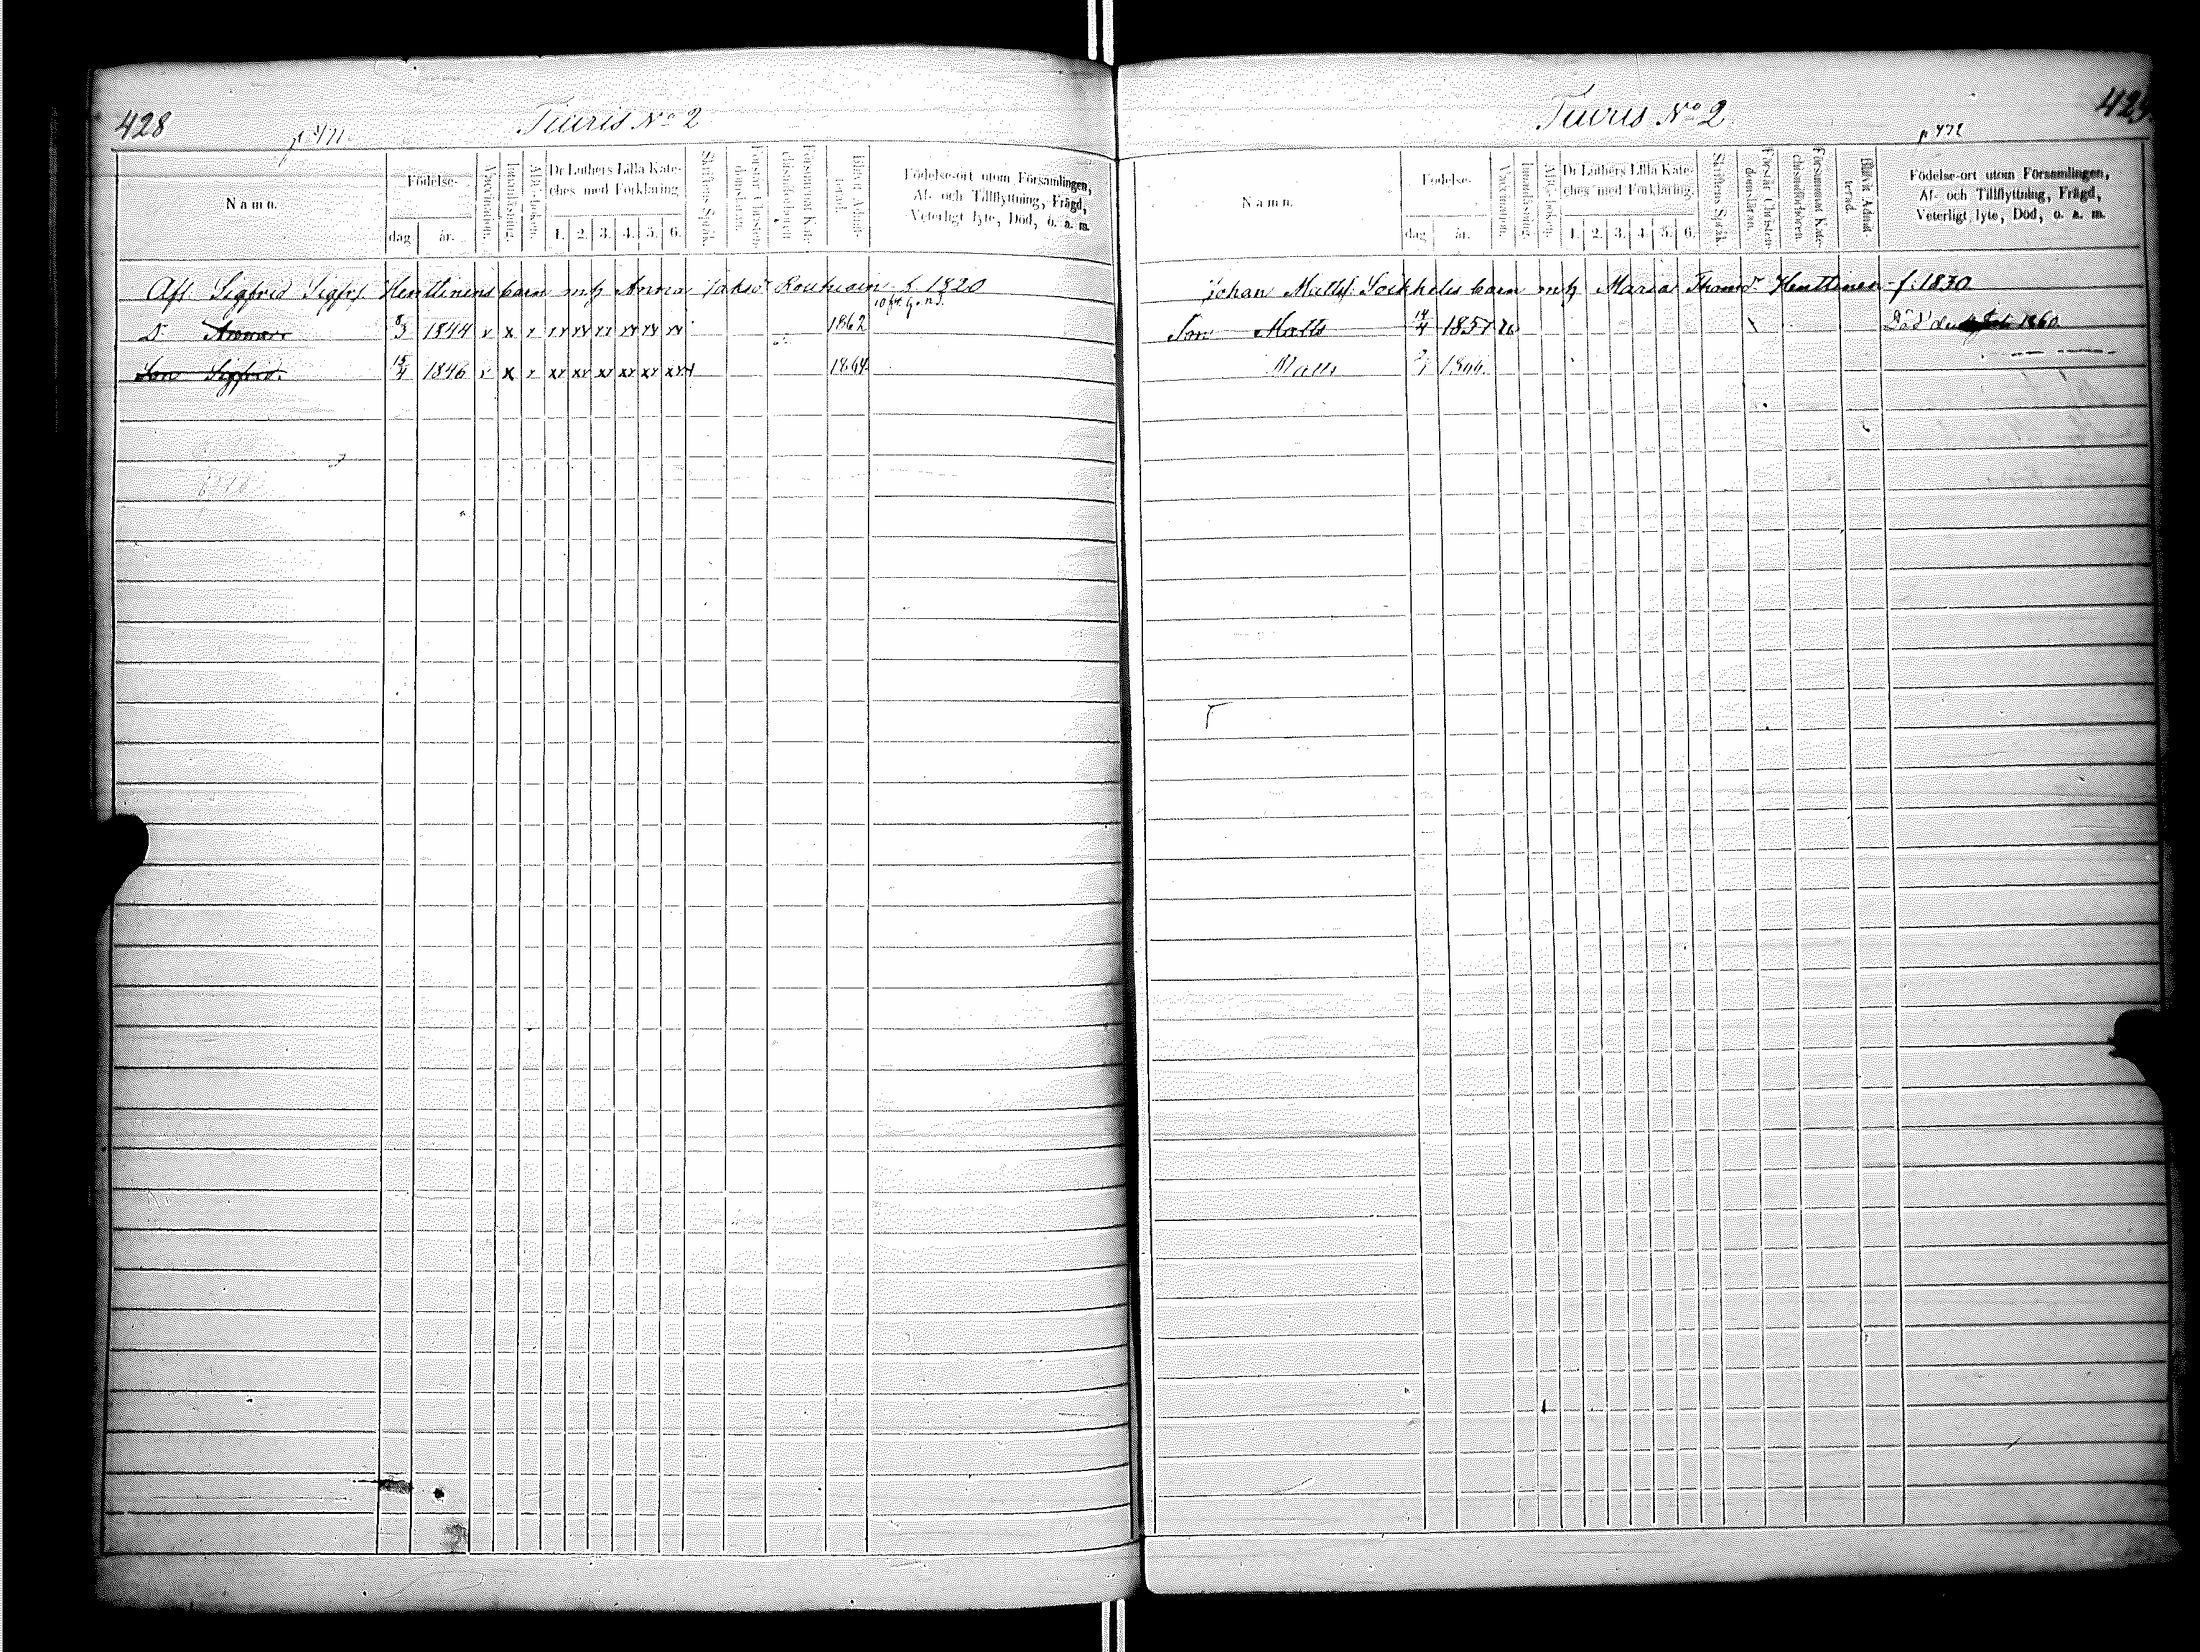 428
Tiuris No 2
p 471
Namn.
Födelse-
dag
år.
Vaccination.
Innanläsning.
ABC-boken.
Dr Luthers Lilla Kate-
ches med Förklaring.
1. 2. 3. 4. 5. 6.
Skriftens Språk.
Förstår Christen-
domsläran.
Försummat Kate-
chismiförhören.
Blifvit Admit-
terad.
Födelse-ort utom Församlingen,
Af- och Tillflyttning, Frägd,
Veterligt lyte, Död, o. a. m.
Afl. Sigfrid Sigfrs Henttinens barn m h Anna Jaksdr f. 1820
D. Anna 8/3 1844 v x x xx xx xx xx xx xx 1862
Son Sigfrid. 15/4 1846 v x x xx xx xx xx xx xx 1864
429
Tiuris No 2
p 472
Namn.
Födelse-
dag
år.
Vaccination.
Innanläsning.
ABC-boken.
Dr Luthers Lilla Kate-
ches med Förklaring.
1. 2. 3. 4. 5. 6.
Skriftens Språk.
Förstår Christen-
domsläran.
Försummat Kate-
chismiförhören.
Blifvit Admit-
terad.
Födelse-ort utom Församlingen,
Af- och Tillflyttning, Frägd,
Veterligt lyte, Död, o. a. m.
Johan Matts Soikkelis barn m h Maria Thomdr Henttinen f. 1830
Son Matts 14/4 1857 Död den 1860
Matts 1866.